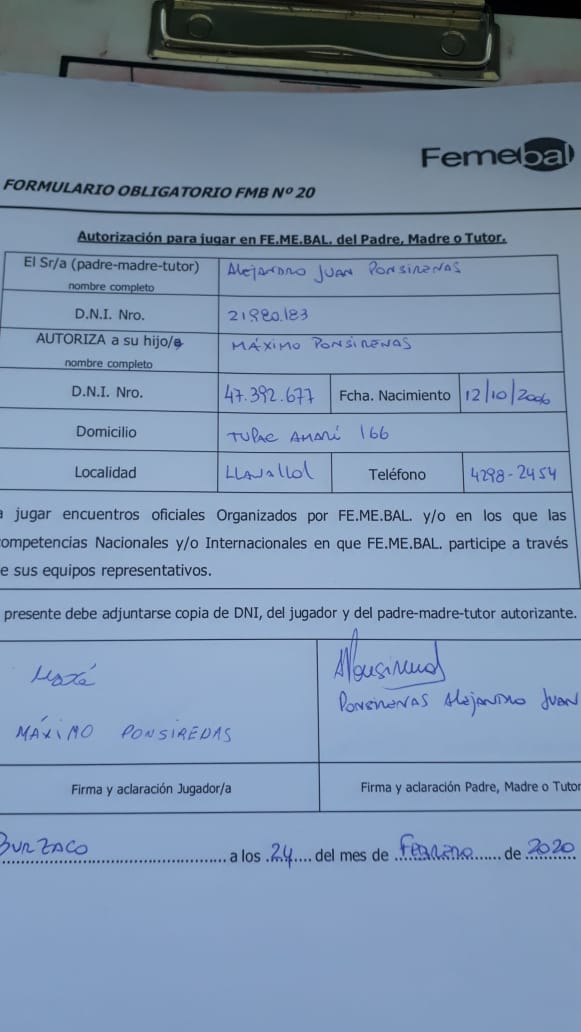 Femebal
FORMULARIO OBLIGATORIO FMB Nº 20
Autorización para jugar en FE.ME.BAL. del Padre, Madre o Tutor.
El Sr/a (padre-madre-tutor) Alejandro Juan Ponsirenas
nombre completo
D.N.I. Nro. 21980.183
AUTORIZA a su hijo/a MÁXIMO PONSIRENAS
nombre completo
D.N.I. Nro. 47.392.677 Fcha. Nacimiento 12/10/2006
Domicilio TUPAC AMARÚ 166
Localidad LLAVALLOL Teléfono 4298-2454
a jugar encuentros oficiales Organizados por FE.ME.BAL. y/o en los que las
competencias Nacionales y/o Internacionales en que FE.ME.BAL. participe a través
e sus equipos representativos.
presente debe adjuntarse copia de DNI, del jugador y del padre-madre-tutor autorizante.
MÁXIMO PONSIREDAS
PONSIRENAS Alejandro JUAN
Firma y aclaración Jugador/a Firma y aclaración Padre, Madre o Tutor
BURZACO a los 24 del mes de FEBRERO de 2020